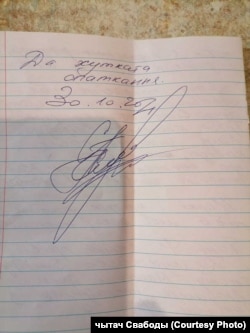 Да хуткага
спаткання
30.10.20
чытач Свабоды (Courtesy Photo)